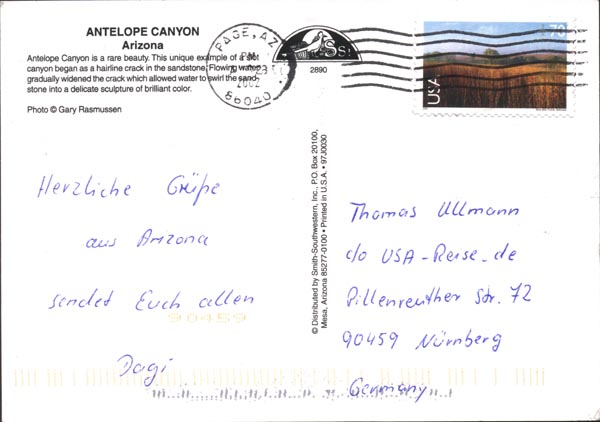 ANTELOPE CANYON
Arizona
Antelope Canyon is a rare beauty. This unique example of a slot
canyon began as a hairline crack in the sandstone. Flowing water
gradually widened the crack which allowed water to swirl the sand-
stone into a delicate sculpture of brilliant color.
Photo © Gary Rasmussen
PAGE, AZ
PM
23
2002
86040
2890
70
USA
© Distributed by Smith-Southwestern, Inc., P.O. Box 20100,
Mesa, Arizona 85277-0100 • Printed in U.S.A. • 97J0030
Herzliche Grüße
aus Arizona
sendet Euch allen
90459
Dagi
Thomas Ullmann
c/o USA-Reise.de
Pillenreuther Str. 72
90459 Nürnberg
Germany